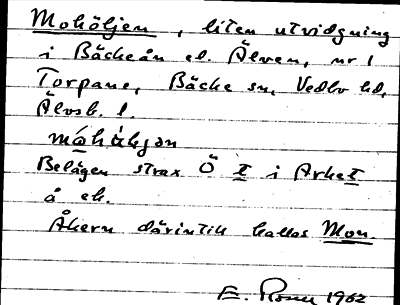 Mohöljen, liten utvidgning
i Bäckeån el. Älven, nr 1
Torpane, Bäcke sn, Vedbo hd,
Älvsb. l.
Belägen strax Ö t i Arket
å ek.
Åkern därintill kallas Mon
1962